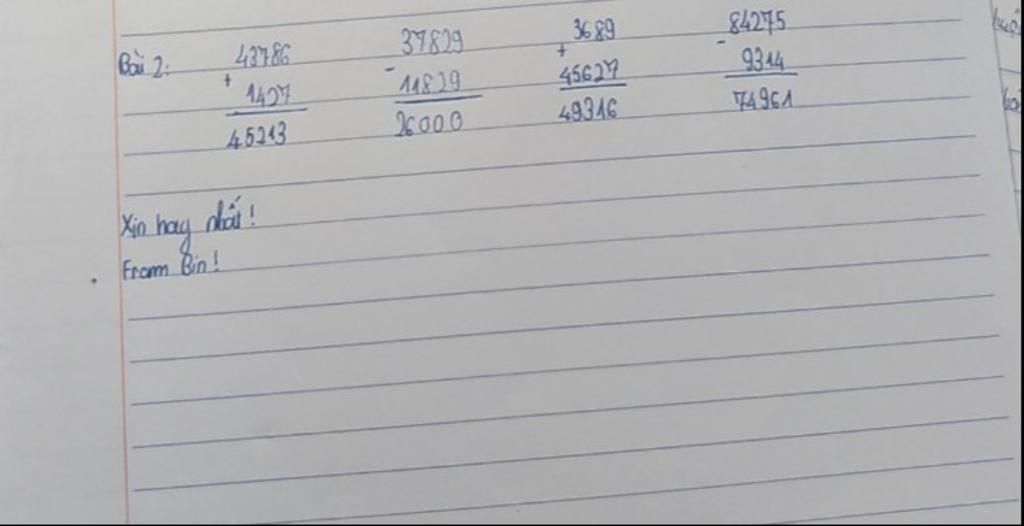 Bài 2: 43786 37829 3689 84275
+ - + -
1427 11829 45627 9314
45213 26000 49316 74961
Xin hay nhất!
From Bin!